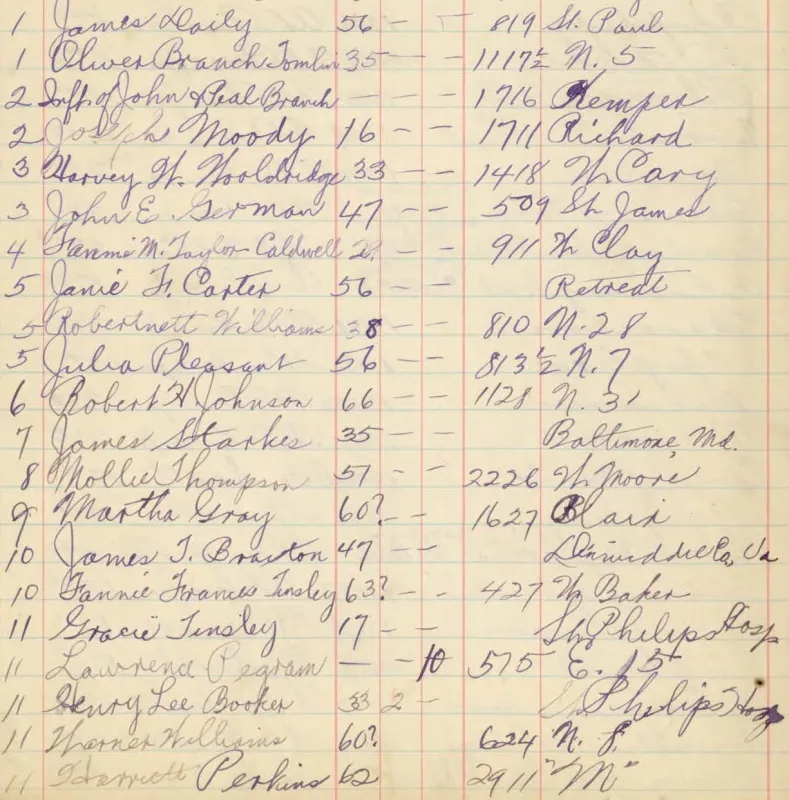 1 James Daily 56 — — 819 St. Paul
1 Oliver Branch Tomlin 35 — — 1117½ N. 5
2 Inft. of John & Peal Branch — — — 1716 Kemper
2 Joseph Moody 16 — — 1711 Richard
3 Harvey W. Wooldridge 33 — — 1418 W Cary
3 John E. German 47 — — 509 St. James
4 M. Taylor Caldwell 911 W Clay
5 Janie F. Carter 56 — — Retreat
5 Robertnett Williams 38 — — 810 N. 28
5 Julia Pleasant 56 — — 813½ N. 7
6 Robert H Johnson 66 — — 1128 N. 31
7 James Starkes 35 — — Baltimore, Md.
8 Mollie Thompson 57 — — 2226 W Moore
9 Martha Gray 60? — — 1627 Blair
10 James T. Braxton 47 — — Dinwiddie Co, Va
10 Fannie Frances Tinsley 63? — — 427 W Baker
11 Gracie Tinsley 17 — — St. Philips Hosp
11 Lawrence Pegram — — 10 575 E. 15
11 Henry Lee Booker 33 2 — St. Philips Hosp
11 Warner Williams 60? 624 N. 8
11 Harriett Perkins 62 2911 "M"